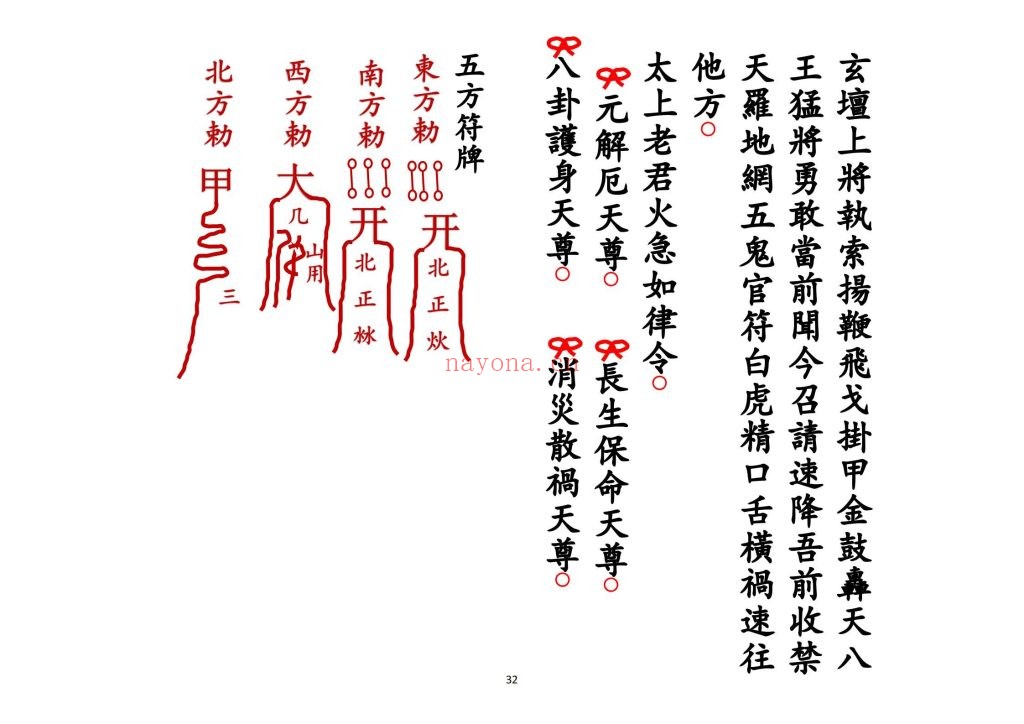 玄壇上將執索揚鞭飛戈掛甲金鼓轟天八
王猛將勇敢當前聞今召請速降吾前收禁
天羅地網五鬼官符白虎精口舌橫禍速往
他方○
太上老君火急如律令○
元解厄天尊○ 長生保命天尊○
八卦護身天尊○ 消災散禍天尊○
五方符牌
東方勅
开
北正炏
南方勅
开
北正沝
西方勅
大
几
山用
北方勅
甲
三
32